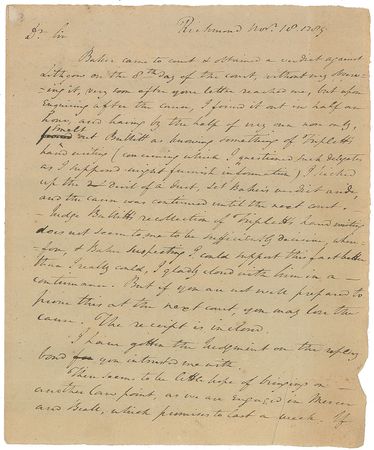 Richmond Nov. 18. 1789
Dr Sir
Baker came to court & obtained a verdict against
Lithgow on the 8th day of the court, without my observ-
ing it, very soon after your letter reached me, but upon
enquiring after the cause, I found it out in half an
hour, and having by the half of my own nose only,
smelt out Bullitt as knowing something of Triplett's
hand writing (concerning which I questioned such delegates
as I supposed might furnish information) I kicked
up the Devil of a dust, set Baker's verdict aside,
and the cause was continued until the next court.
Judge Bullitt's recollection of Triplett's hand writing
does not seem to me to be sufficiently decisive, where-
fore, & Baker suspecting I could support this fact better
than I really could, I gladly closed with him in a
continuance. But if you are not well prepared to
prove this at the next court, you may lose the
cause. The receipt is inclosed.
I have gotten the Judgment on the replevy
bond you intrusted me with.
There seems to be little hope of bringing on
another Caro point, as we are engaged in Mercer
and Beale, which promises to last a week. If